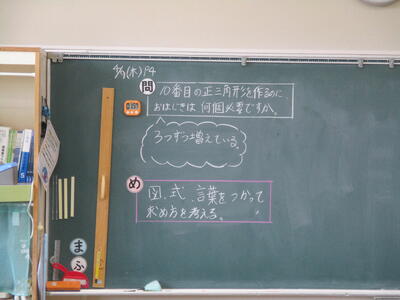 (木) P4
問
10番目の正三角形を作るに
おはじきは何個必要ですか。
3つずつ増えている。
め
図、式、言葉をつかって
求め方を考える。
ま
ふ